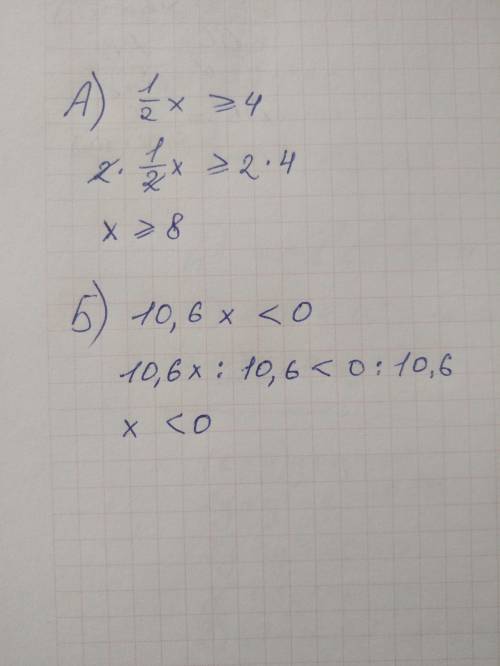 А) 1/2 x ⩾ 4
2 · 1/2 x ⩾ 2 · 4
x ⩾ 8
Б) 10,6 x < 0
10,6x : 10,6 < 0 : 10,6
x < 0